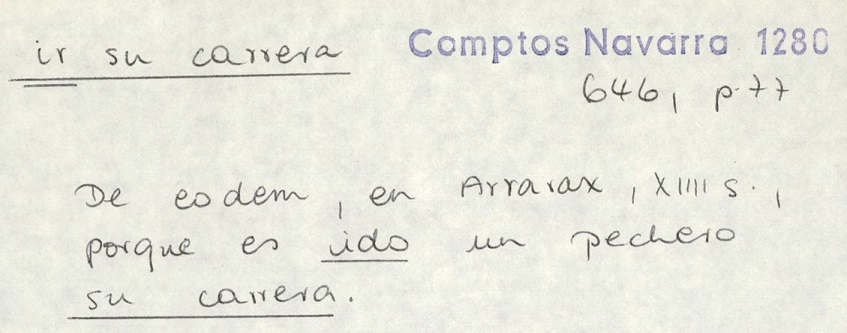 ir su carrera Comptos Navarra 1280
646, p. 77
De eodem, en Arrarax, XIIII s.,
porque es ido un pechero
su carrera.